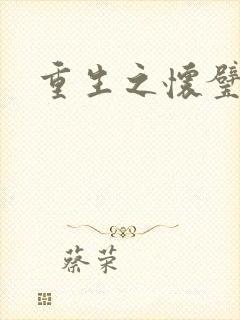 重生之怀璧
蔡荣